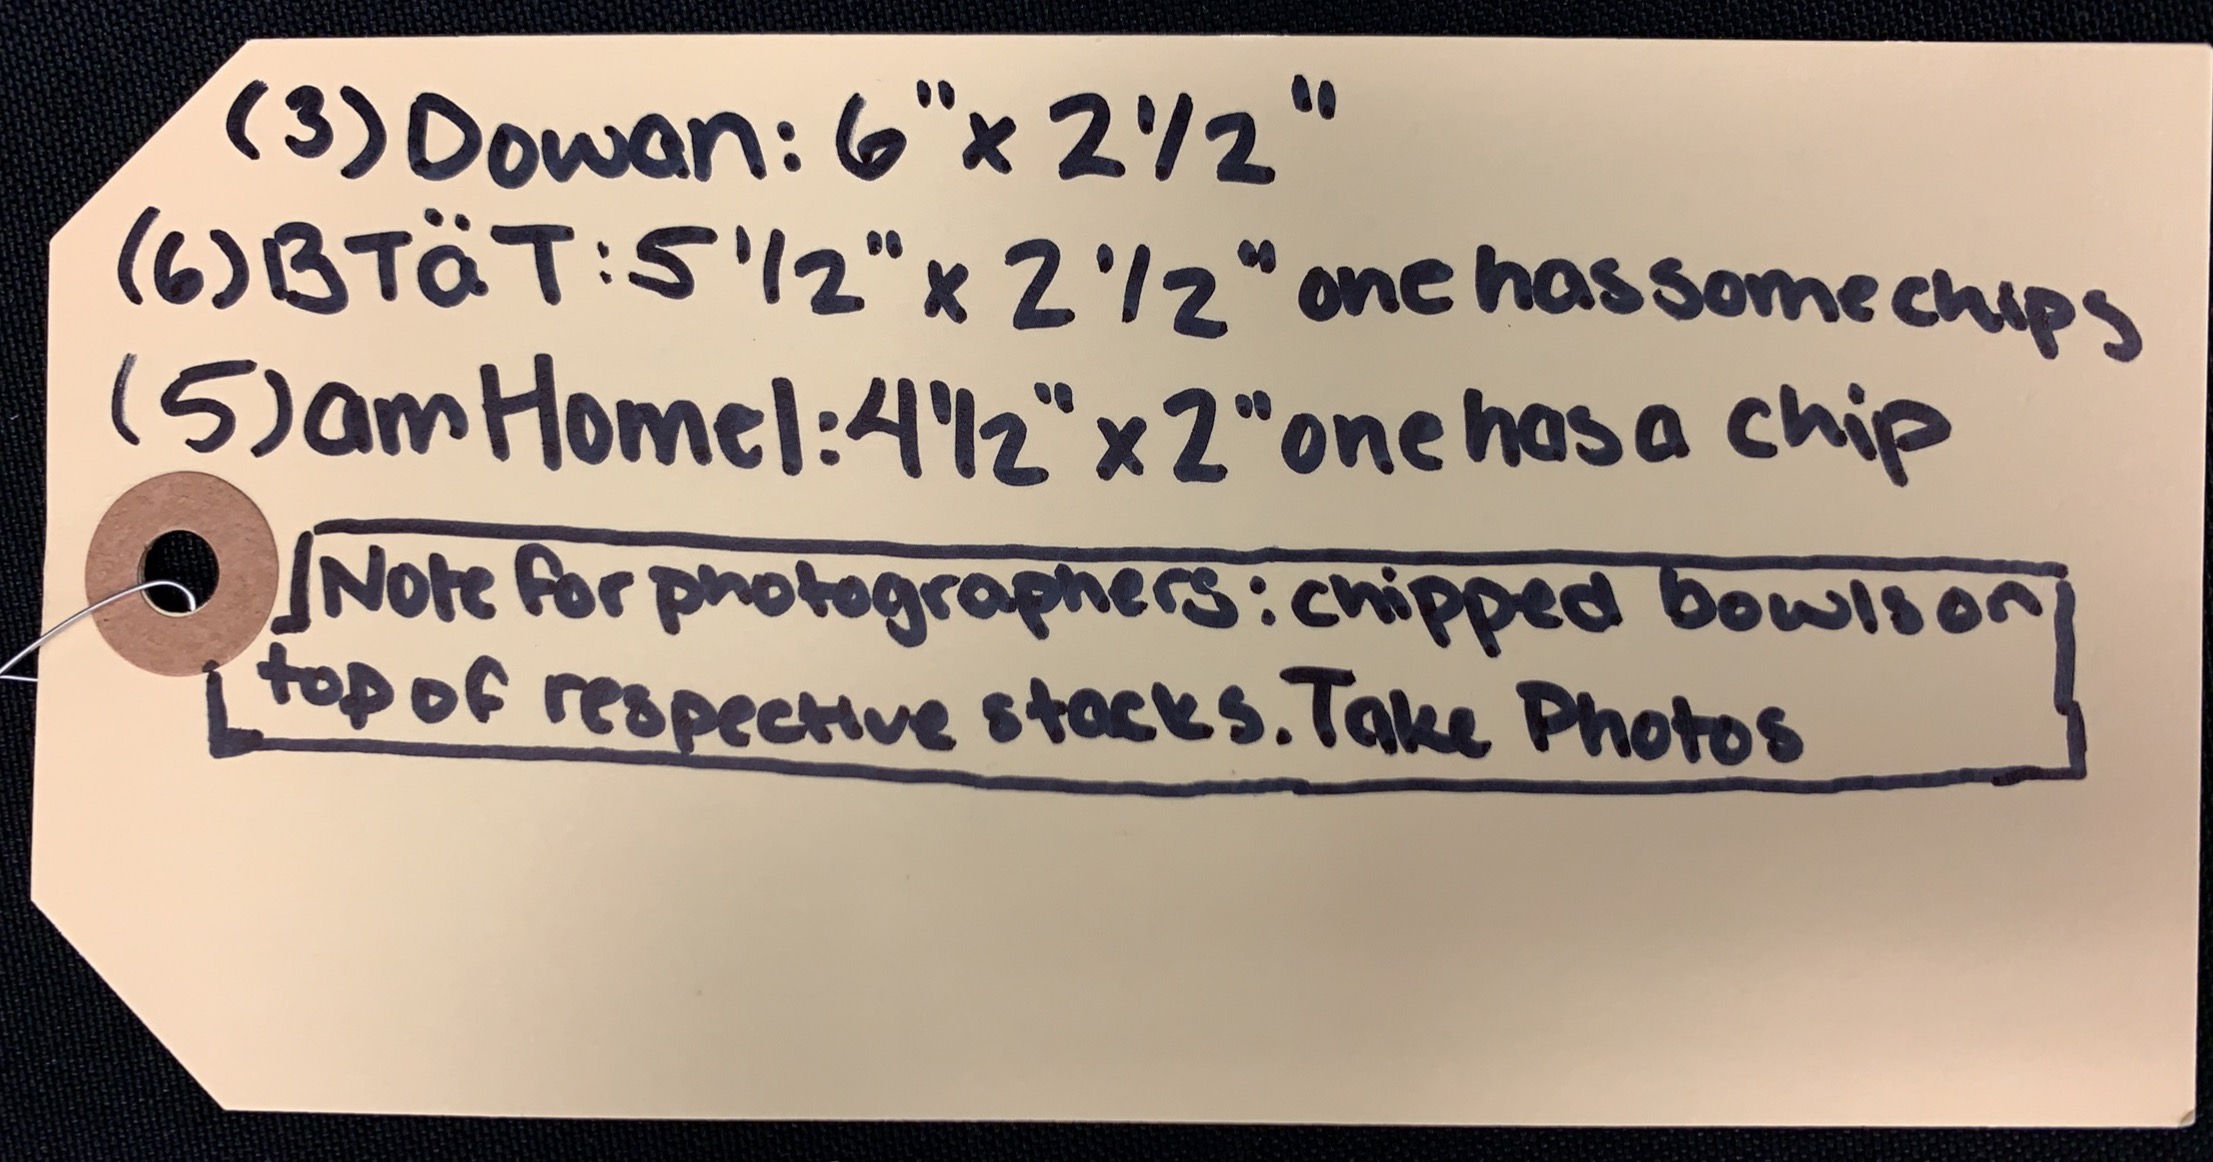 (3) Dowan: 6" x 2 1/2"
(6) BTäT: 5 1/2" x 2 1/2" one has some chips
(5) amHomel: 4 1/2" x 2" one has a chip
Note for photographers: chipped bowls on
top of respective stacks. Take Photos